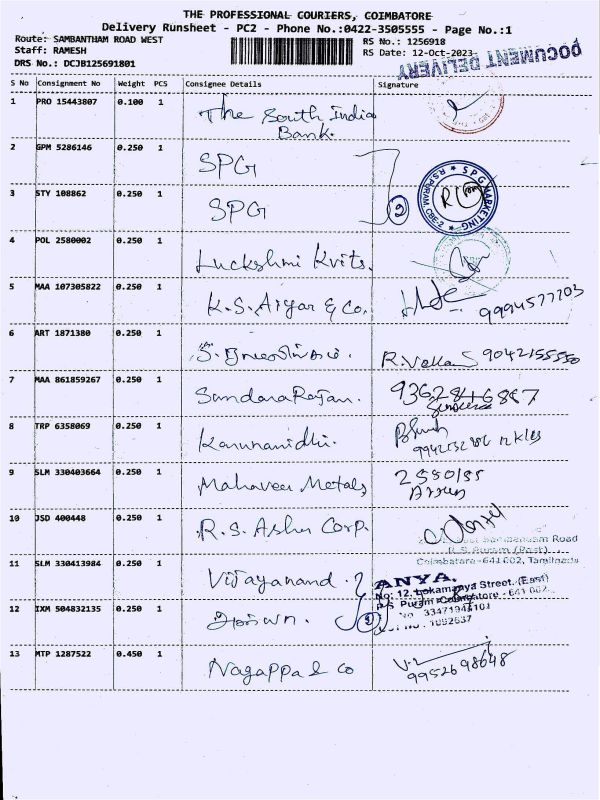 THE PROFESSIONAL COURIERS, COIMBATORE
Delivery Runsheet - PC2 - Phone No.:0422-3505555 - Page No.:1
Route: SAMBANTHAM ROAD WEST
RS No.: 1256918
Staff: RAMESH
RS Date: 12-Oct-2023
DRS No.: DCJB125691801
DOCUMENT DELIVERY
S No Consignment No Weight PCS Consignee Details Signature
1 PRO 15443807 0.100 1 The South India
Bank.
2 GPM 5286146 0.250 1 SPG
SPG MARKETING
R.S.PURAM, CBE-2
3 STY 108862 0.250 1 SPG 2
4 POL 2580002 0.250 1 Luckshmi Kvits.
5 MAA 107305822 0.250 1 K.S. Aiyar & Co. 9994577703
6 ART 1871380 0.250 1 R.Vel 9042155550
7 MAA 861859267 0.250 1 SundaraRajan.
8 TRP 6358069 0.250 1 Karunanidhi.
9 SLM 330403664 0.250 1 Mahaveer Metals 2550155
10 JSD 400448 0.250 1 R.S. Asher Corp.
Road
R.S. Puram (East)
Coimbatore - 641 002, Tamilnadu
11 SLM 330413984 0.250 1 Vijayanand.
ANYA.
No: 12, Lokamanya Street, (East)
R.S. Puram Coimbatore - 641 002.
12 IXM 504832135 0.250 1
13 MTP 1287522 0.450 1 Nagappa & Co
9952698648